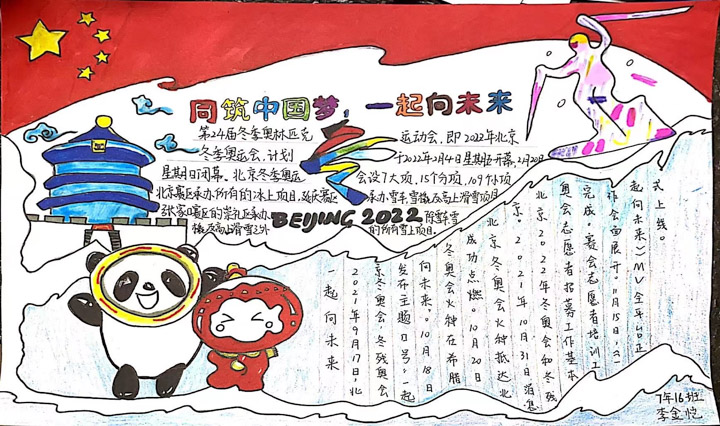 同筑中国梦,一起向未来
第24届冬季奥林匹克运动会,即2022年北京
冬季奥运会,计划于2022年2月4日星期五开幕,2月20日
星期日闭幕。北京冬季奥运会设7大项,15个分项,109个小项
北京赛区承办所有的冰上项目,延庆赛区承办雪车、雪橇及高山滑雪项目
张家口赛区的崇礼区承办除雪车雪
橇及高山滑雪之外的所有雪上项目。
BEIJING 2022
一起向未来
2021年9月17日,北
京冬奥会、冬残奥会
发布主题口号:一起
向未来。10月18日
冬奥会火种在希腊
成功点燃。10月20日
北京冬奥会火种抵达北
京。2021年10月31日消息
北京2022年冬奥会和冬残
奥会志愿者招募工作基本
完成。赛会志愿者培训工
作全面展开。11月15日,《一
起向未来》MV全平台正
式上线。
7年16班
李金